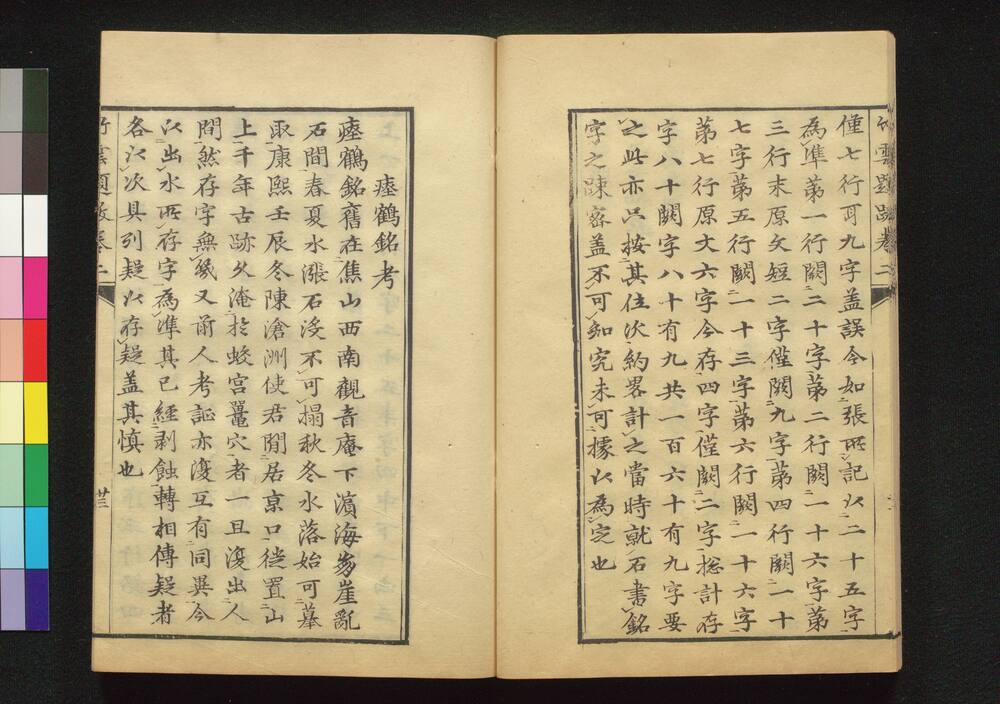 竹雲題跋卷二
僅七行耳九字盖誤今如張所記以二十五字
為準第一行闕二十字第二行闕一十六字第
三行末原文短二字僅闕九字第四行闕一十
七字第五行闕一十三字第六行闕一十六字
第七行原文六字今存四字僅闕二字捴計存
字八十闕字八十有九共一百六十有九字要
之此亦只按其位次約畧計之當時就石書銘
字之踈密盖不可知究未可據以為定也
瘞鶴銘考
瘞鶴銘舊在焦山西南觀音庵下濵海崩崖亂
石間春夏水漲石沒不可搨秋冬水落始可摹
取康熙壬辰冬陳滄洲使君閒居京口徙置山
上千年古跡久淹於蛟宫鼉穴者一旦復出人
間然存字無幾又前人考証亦復互有同異今
以出水所存字為準其已經剥蝕轉相傳疑者
各以次具列疑以存疑盖其慎也
竹雲題跋卷二